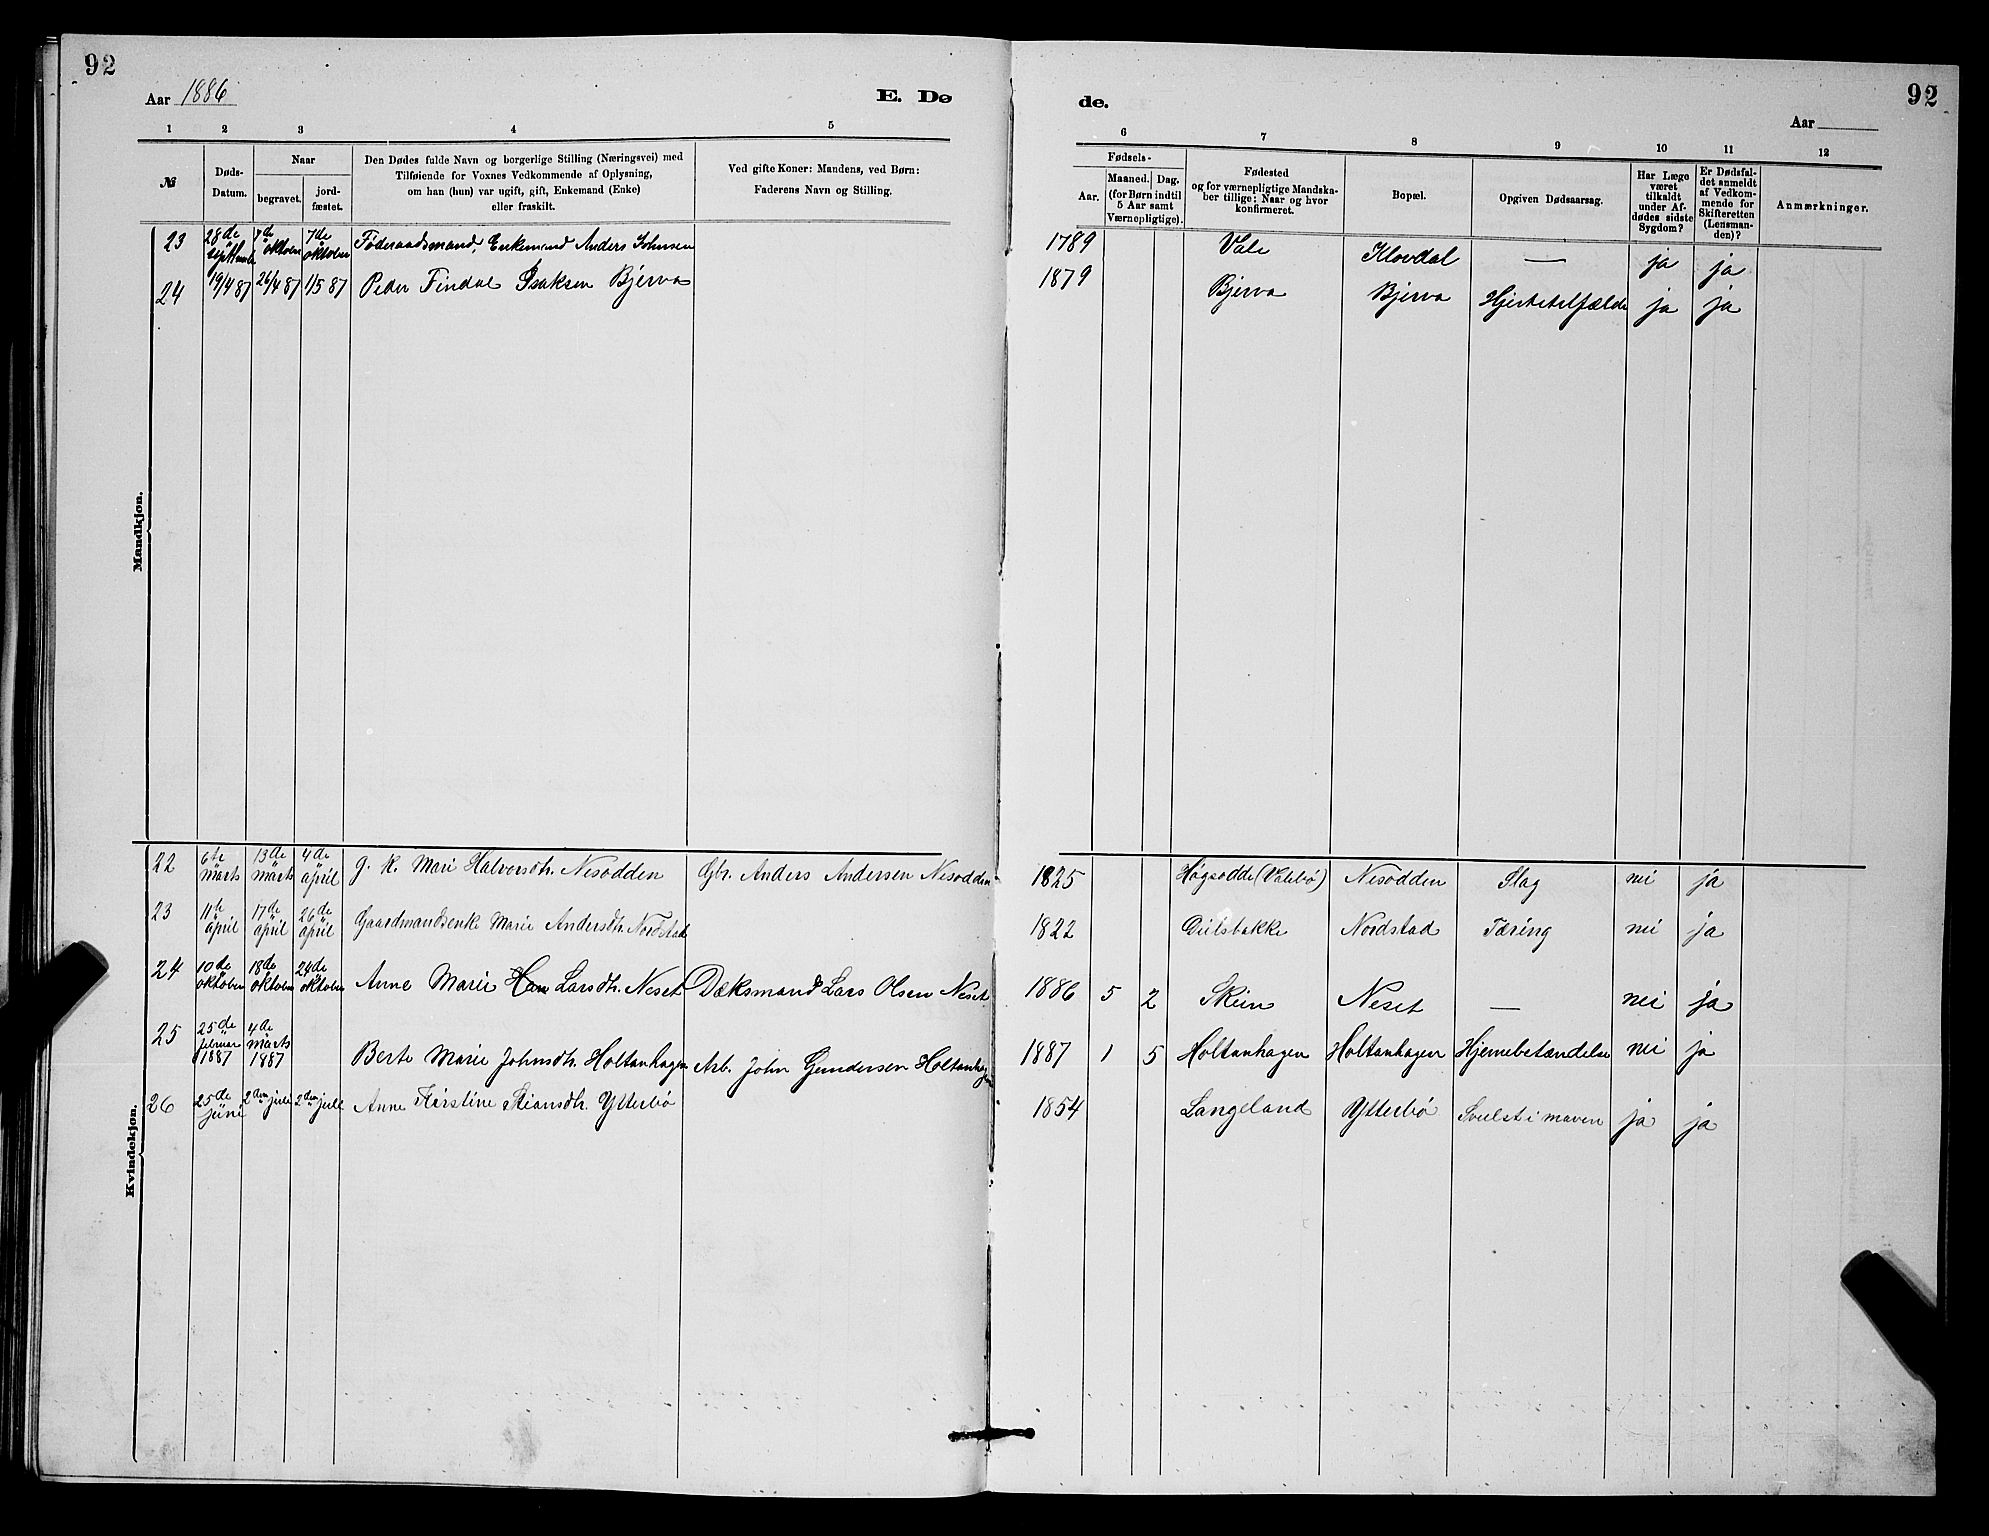 92
92
Aar 1886
E. Dø
de.
Aar
1 2 3 4 5 6 7 8 9 10 11 12
№
Døds-Datum.
Naar
begravet.
jord-fæstet.
Den Dødes fulde Navn og borgerlige Stilling (Næringsvei) med
Tilføiende for Voxnes Vedkommende af Oplysning,
om han (hun) var ugift, gift, Enkemand (Enke)
eller fraskilt.
Ved gifte Koner: Mandens, ved Børn:
Faderens Navn og Stilling.
Fødsels-
Aar.
Maaned. Dag.
(for Børn indtil
5 Aar samt
Værnepligtige).
Fødested
og for værnepligtige Mandska-
ber tillige: Naar og hvor
konfirmeret.
Bopæl.
Opgiven Dødsaarsag.
Har Læge
været
tilkaldt
under Af-
dødes sidste
Sygdom?
Er Dødsfal-
det anmeldt
af Vedkom-
mende for
Skifteretten
(Lensman-
den)?
Anmærkninger.
Mandkjøn.
23 28de september 7de oktober 7de oktober Føderaadsmand, Enkemand Anders Johnsen 1789 Vale Klovdal — ja ja
24 19/4 87 26/4 87 1/5 87 Peder Findal Isaksen Bjerva 1879 Bjerva Bjerva Hjertetilfælde ja ja
Kvindekjøn.
22 6te marts 13de marts 4de april g. k. Mari Halvorsdtr. Nesodden Gbr. Anders Andersen Nesodden 1825 Høgsodde (Valebø) Nesodden Slag nei ja
23 11te april 17de april 26de april Gaardmandsenke Marie Andersdtr. Nordstad 1822 Dülsbakke Nordstad Tæring nei ja
24 10de oktober 18de oktober 24de oktober Anne Marie Larsdtr. Neset Dæksmand Lars Olsen Neset 1886 5 2 Skien Neset — nei ja
25 25de februar 1887 4de marts 1887 Berte Marie Johnsdtr. Holtanhagen Arb. John Gundersen Holtanhagen 1887 1 5 Holtanhagen Holtanhagen Hjernebetændelse nei ja
26 25de juni 2den juli 2den juli Anne Kirstine Stiansdtr. Ytterbø 1854 Langeland Ytterbø Svulst i maven ja ja